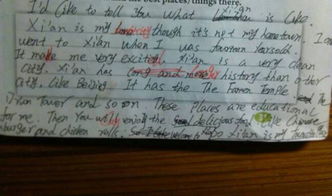 the best places) things there.
I'd like to tell You what Xi'an is like.
Xi'an is my though it's not my hometown. I
went to Xi'an When I was fourteen
It made me very excited. Xi'an is a very clean
City. Xi'an has long and more history than other
city. like Beijing. It has the The Famen Temple
Tower and so on These Places are educational
for me. Then You will enjoy the delicious food like Chinese
burger and chicken rolls. Xi'an is my favorite